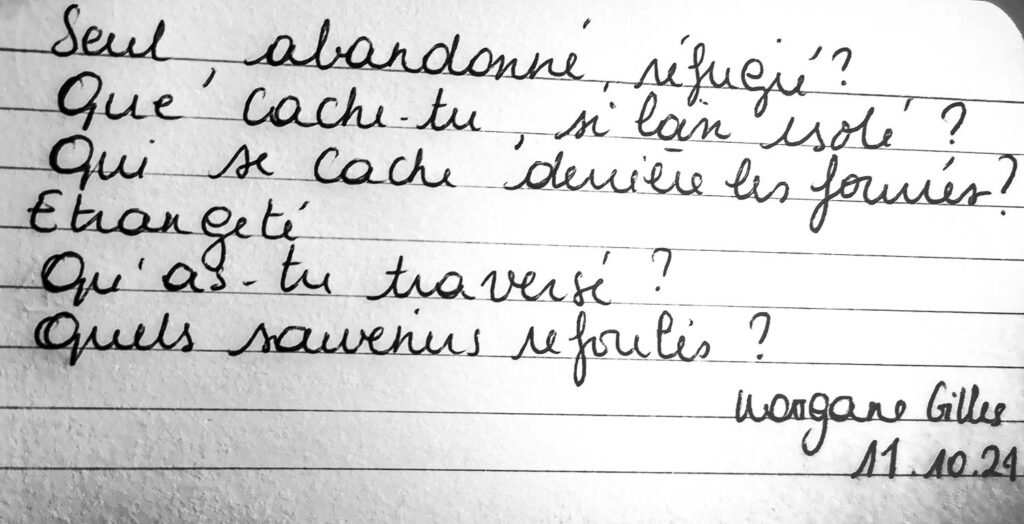 Seul, abandonné, réfugié?
Que cache-tu, si loin isolé?
Qui se cache derrière les fourrés?
Etrangeté
Qu'as-tu traversé?
Quels souvenirs refoulés?
Morgane Gilles
11.10.24